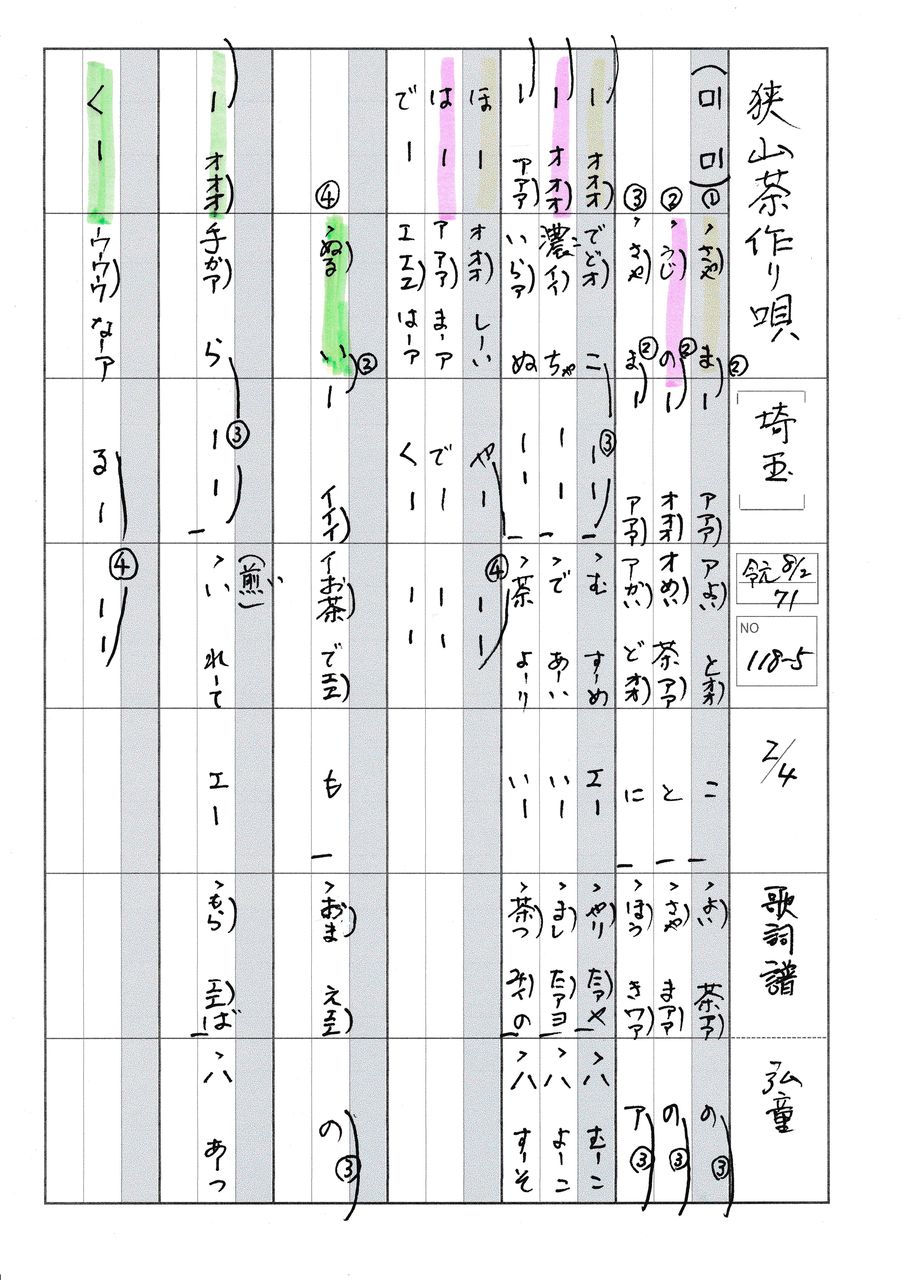 狭山茶作り唄 埼玉 令元 8/2 71 NO 118-5 2/4 歌詞譜 弘童
(ロ ロ) ① 〻さや ま ② ー アアア) アよい) とオオ) こ 〻よい 茶アア) の ③
② 〻うじ の ② ー オオオ) オめい) 茶アア) と 〻さや まアア) の ③
③ 〻さや ま ② ー アアア) アかい) どオオ) に 〻ほう きワア) ア ③
ー オオオ) でどオ こ ー ー ③ 〻む すーめ エー 〻やり たアメ 〻ハ むーこ
ー オオオ) 濃イイ ちゃ ー ー 〻で あーい いー 〻まし たアヨ 〻ハ よーこ
ー アアア) いらア ぬ ー ー 〻茶 よーり いー 〻茶つ みイの 〻ハ すーそ
ほ ー オオオ) しーい やー ー ー ④
は ー アアア) まーア でー ー ー
で ー エエエ) はーア くー ー ー
④ 〻ぬる い ② ー イイイ) イお茶) でエエ) も 〻おま えエエ) の ③
ー オオオ) 手かア ら ー ー ③ (煎) い 〻い れーて エー 〻もら エエ)ば 〻ハ あーつ
く ー ウウウ) なーア る ー ー ー ④